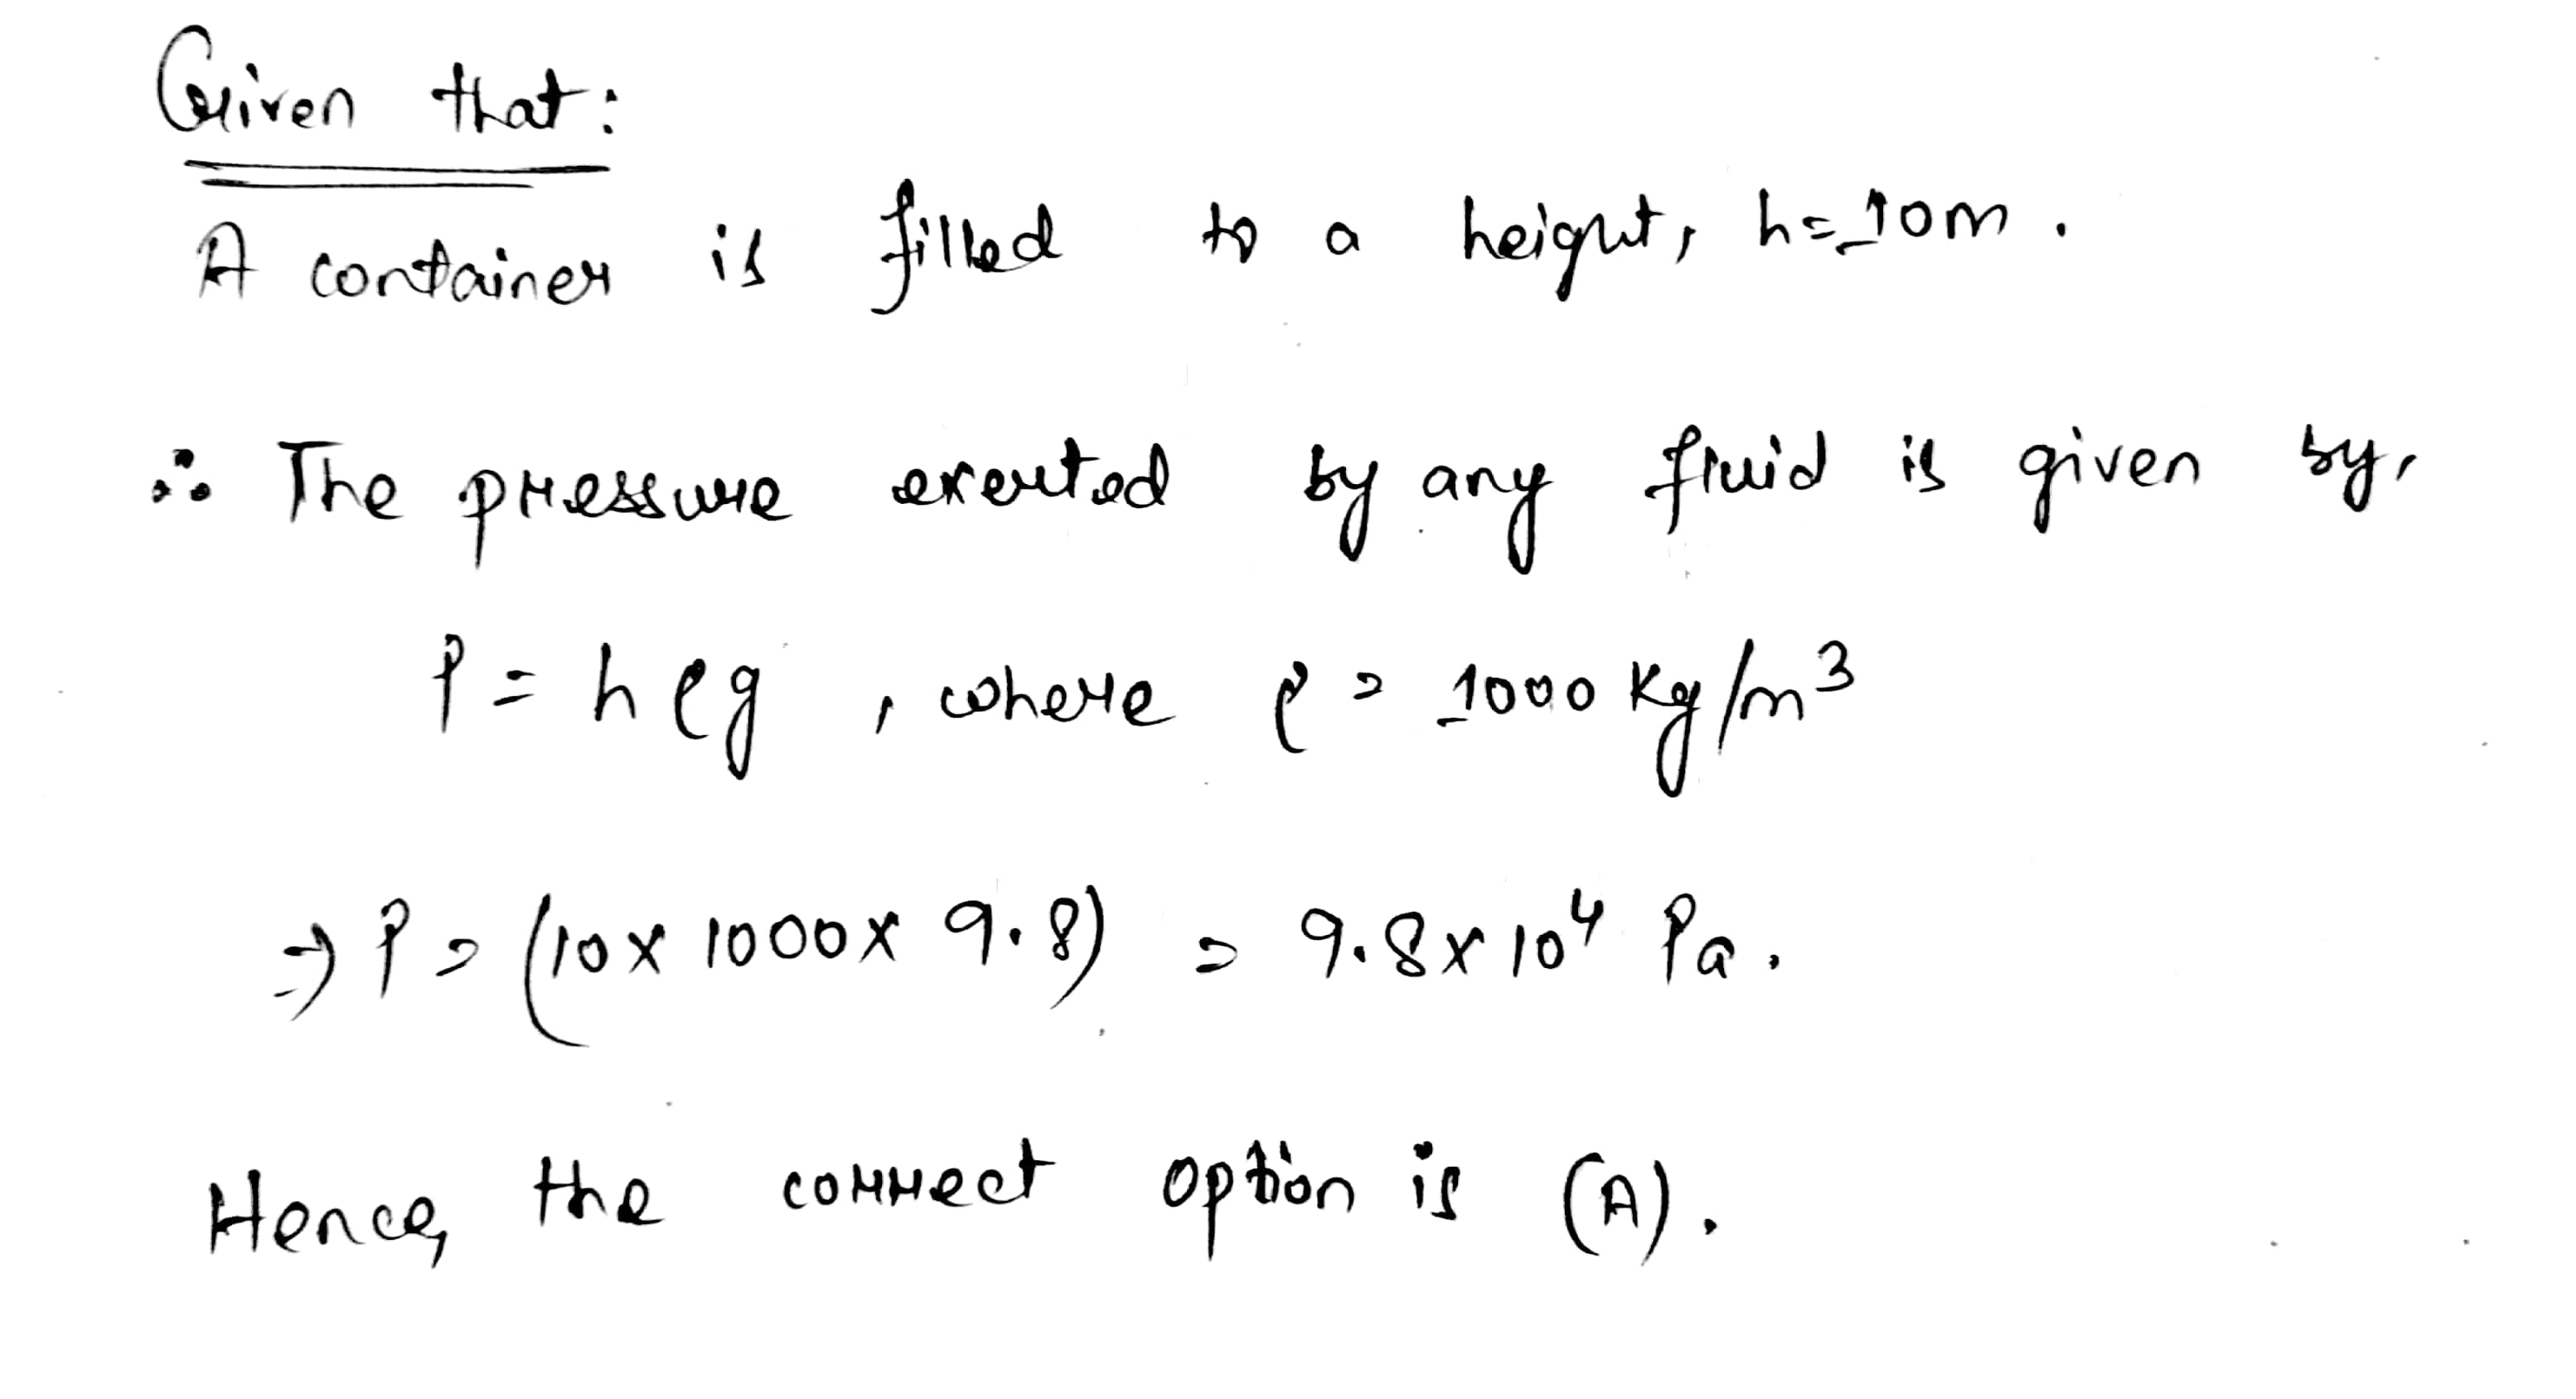 Given that:
A container is filled to a height, h = 10m.
∴ The pressure exerted by any fluid is given by,
P = hρg, where ρ = 1000 Kg/m³
⇒ P = (10 x 1000 x 9.8) = 9.8 x 10⁴ Pa.
Hence, the correct option is (A).